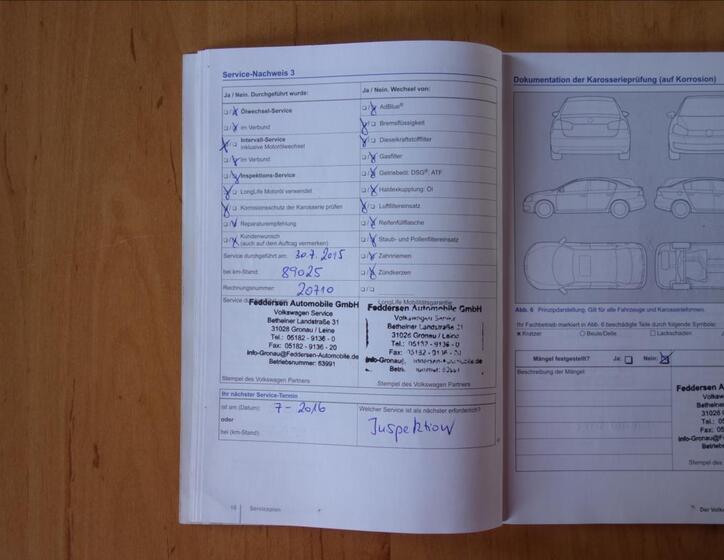 Service-Nachweis 3
Ja / Nein. Durchgeführt wurde:
Ölwechsel-Service
im Verbund
Intervall-Service
inklusive Motorölwechsel
im Verbund
Inspektions-Service
LongLife Motoröl verwendet
Korrosionsschutz der Karosserie prüfen
Reparaturempfehlung
Kundenwunsch
(auch auf dem Auftrag vermerken)
Service durchgeführt am: 30.7.2015
bei km-Stand: 89025
Rechnungsnummer: 20710
Ja / Nein. Wechsel von:
AdBlue®
Bremsflüssigkeit
Dieselkraftstofffilter
Gasfilter
Getriebeöl: DSG®, ATF
Haldexkupplung: Öl
Luftfiltereinsatz
Reifenfüllflasche
Staub- und Pollenfiltereinsatz
Zahnriemen
Zündkerzen
Feddersen Automobile GmbH
Volkswagen Service
Betheiner Landstraße 31
31028 Gronau / Leine
Tel.: 05182 - 9136 - 0
Fax: 05182 - 9136 - 20
info-Gronau@Feddersen-Automobile.de
Betriebsnummer: 63991
Stempel des Volkswagen Partners
LongLife Mobilitätsgarantie
Feddersen Automobile GmbH
Volkswagen Service
Betheiner Landstraße 31
31028 Gronau / Leine
Tel.: 05182 - 9136 - 0
Fax: 05182 - 9136 - 20
Stempel des Volkswagen Partners
Ihr nächster Service-Termin
ist am (Datum): 7-2016
oder
bei (km-Stand):
Welcher Service ist als nächster erforderlich?
Inspektion
Serviceplan
Dokumentation der Karosserieprüfung (auf Korrosion)
Abb. 6 Prinzipdarstellung. Gilt für alle Fahrzeuge und Karosserieformen.
Ihr Fachbetrieb markiert in Abb. 6 beschädigte Teile durch folgende Symbole:
Kratzer Beule/Delle Lackschäden
Mängel festgestellt? Ja: Nein:
Beschreibung der Mängel:
Feddersen
Stempel des